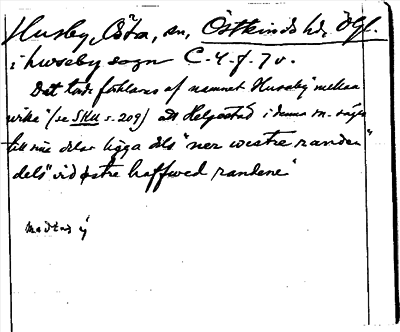 Husby, Östra, sn, Östkinds hd, Ögl.
i husseby sogn C-4-f. 7 v.
Det torde förklaras af namnet Husaby "mellan
wika" (se SHU s. 209) att Helgestad i denna sn. säges
till sine delar ligga dels "ner westre randen"
dels "vid østre haffwed randene"
Medtas ej